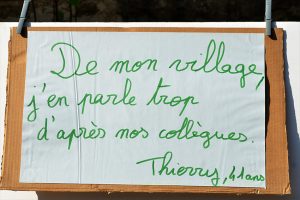 De mon village,
j'en parle trop
d'après nos collègues.
Thierry, 41 ans